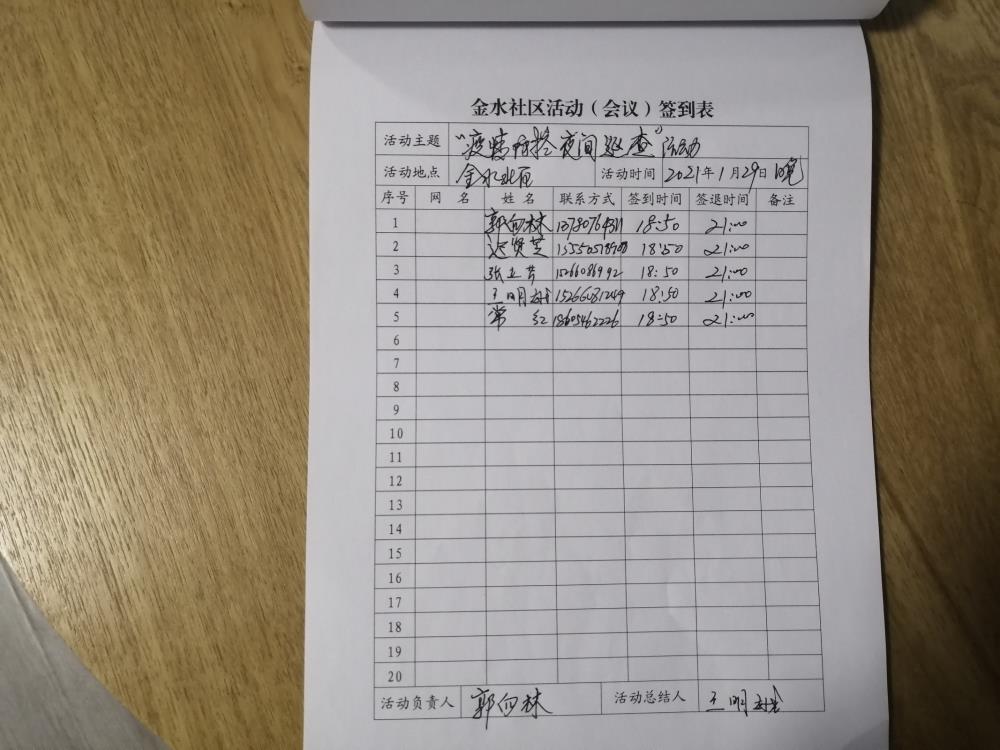 金水社区活动（会议）签到表
活动主题 “疫情防控夜间巡查”活动
活动地点 金水社区 活动时间 2021年1月29日晚
序号 网名 姓名 联系方式 签到时间 签退时间 备注
1 郭向林 18:50 21:00
2 迟贤芝 18:50 21:00
3 张立芳 15266086992 18:50 21:00
4 王明 15266031249 18:50 21:00
5 常红 18605462226 18:50 21:00
6
7
8
9
10
11
12
13
14
15
16
17
18
19
20
活动负责人 郭向林 活动总结人 王明